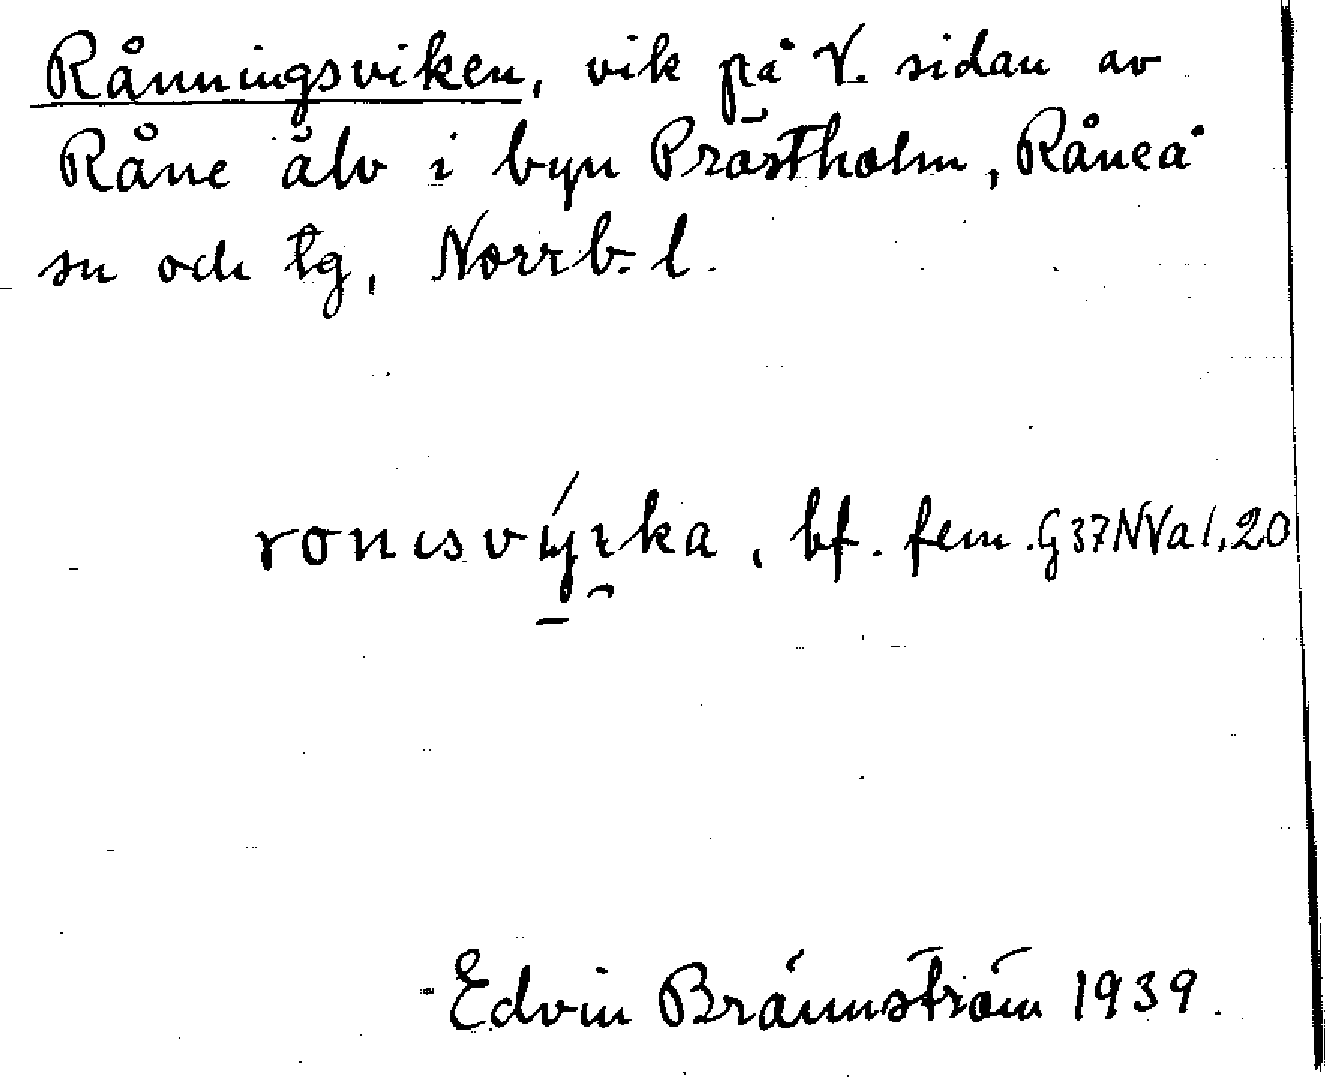 Rånningsviken, vik på V. sidan av
Råne älv i byn Prästholm, Råneå
sn och tg, Norrb. l.
ronıs výıka, bf. fem. G37NVa1,20
Edvin Brännström 1939.